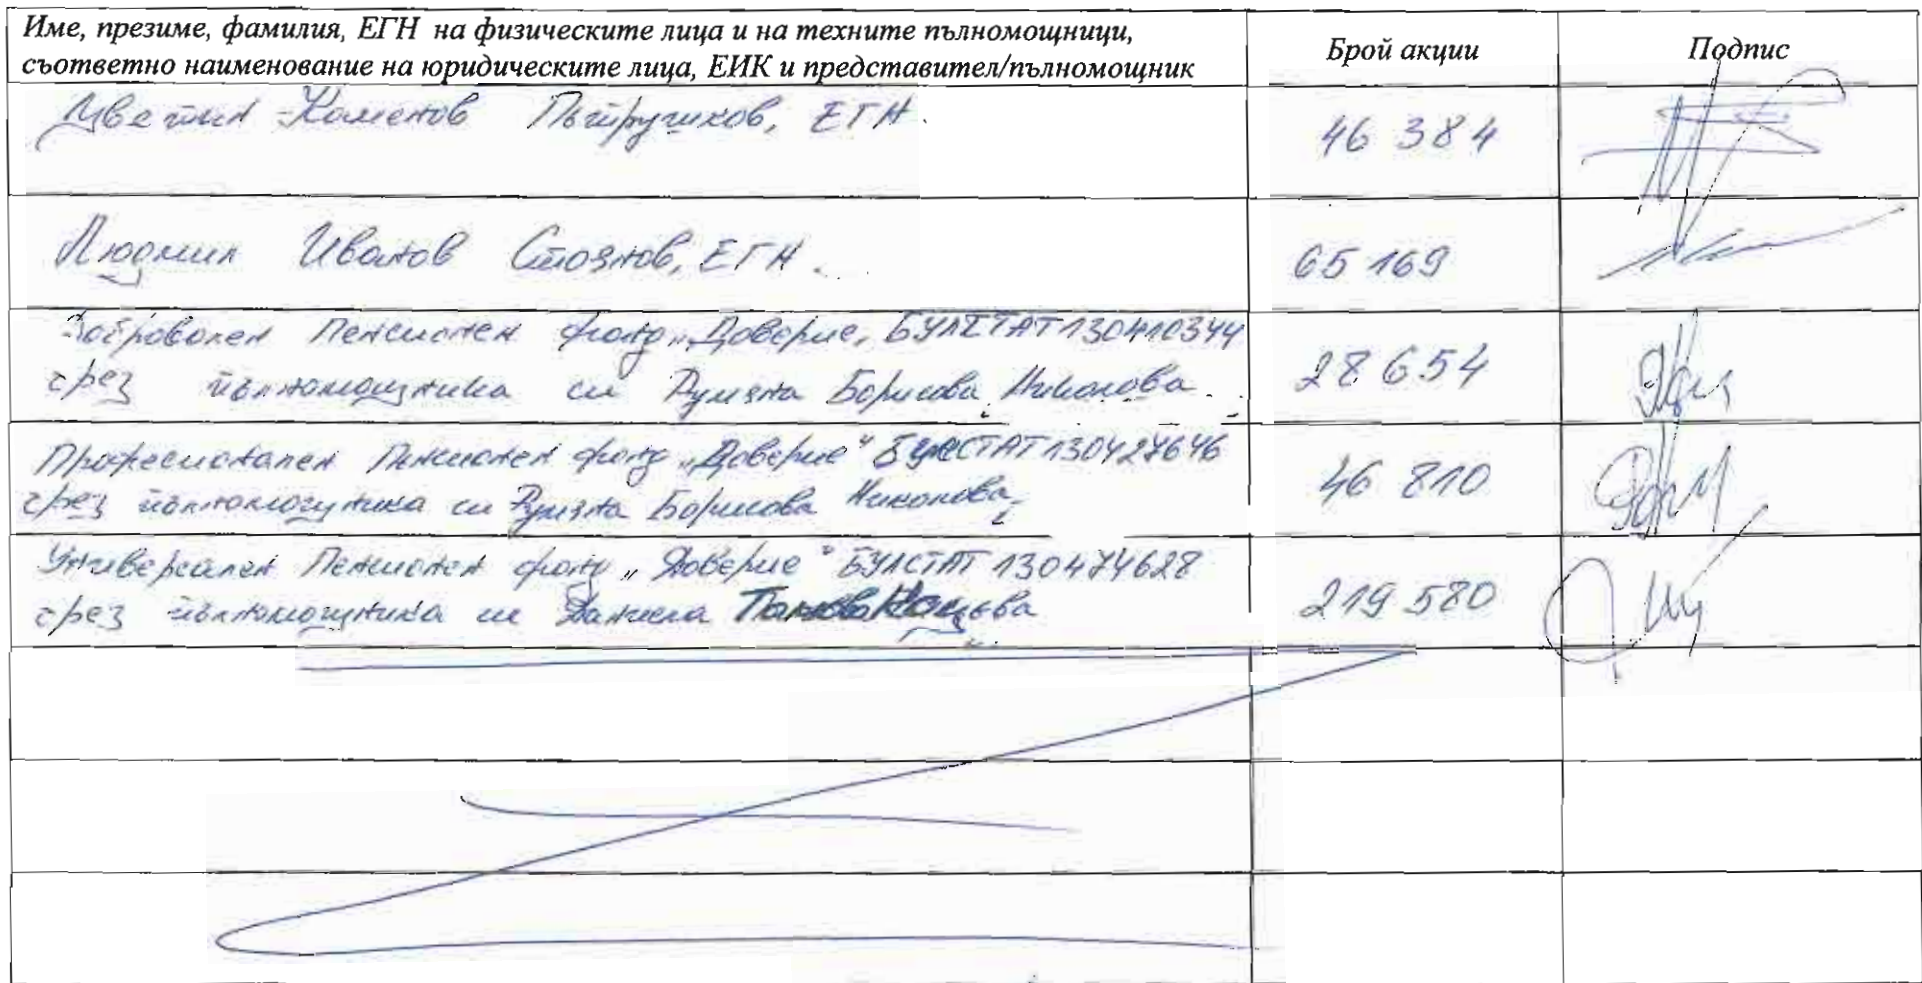 Име, презиме, фамилия, ЕГН на физическите лица и на техните пълномощници,
съответно наименование на юридическите лица, ЕИК и представител/пълномощник
Брой акции
Подпис
Цветин Каменов Пътрушков, ЕГН.
46 384
Людмил Иванов Стоянов, ЕГН.
65 169
Доброволен Пенсионен фонд „Доверие, БУЛСТАТ 130410344
чрез пълномощника си Румяна Борисова Николова.
28 654
Професионален Пенсионен фонд „Доверие" БУЛСТАТ 130427646
чрез пълномощника си Румяна Борисова Николова
46 810
Универсален Пенсионен фонд „Доверие" БУЛСТАТ 130474628
чрез пълномощника си Даниела
219 580